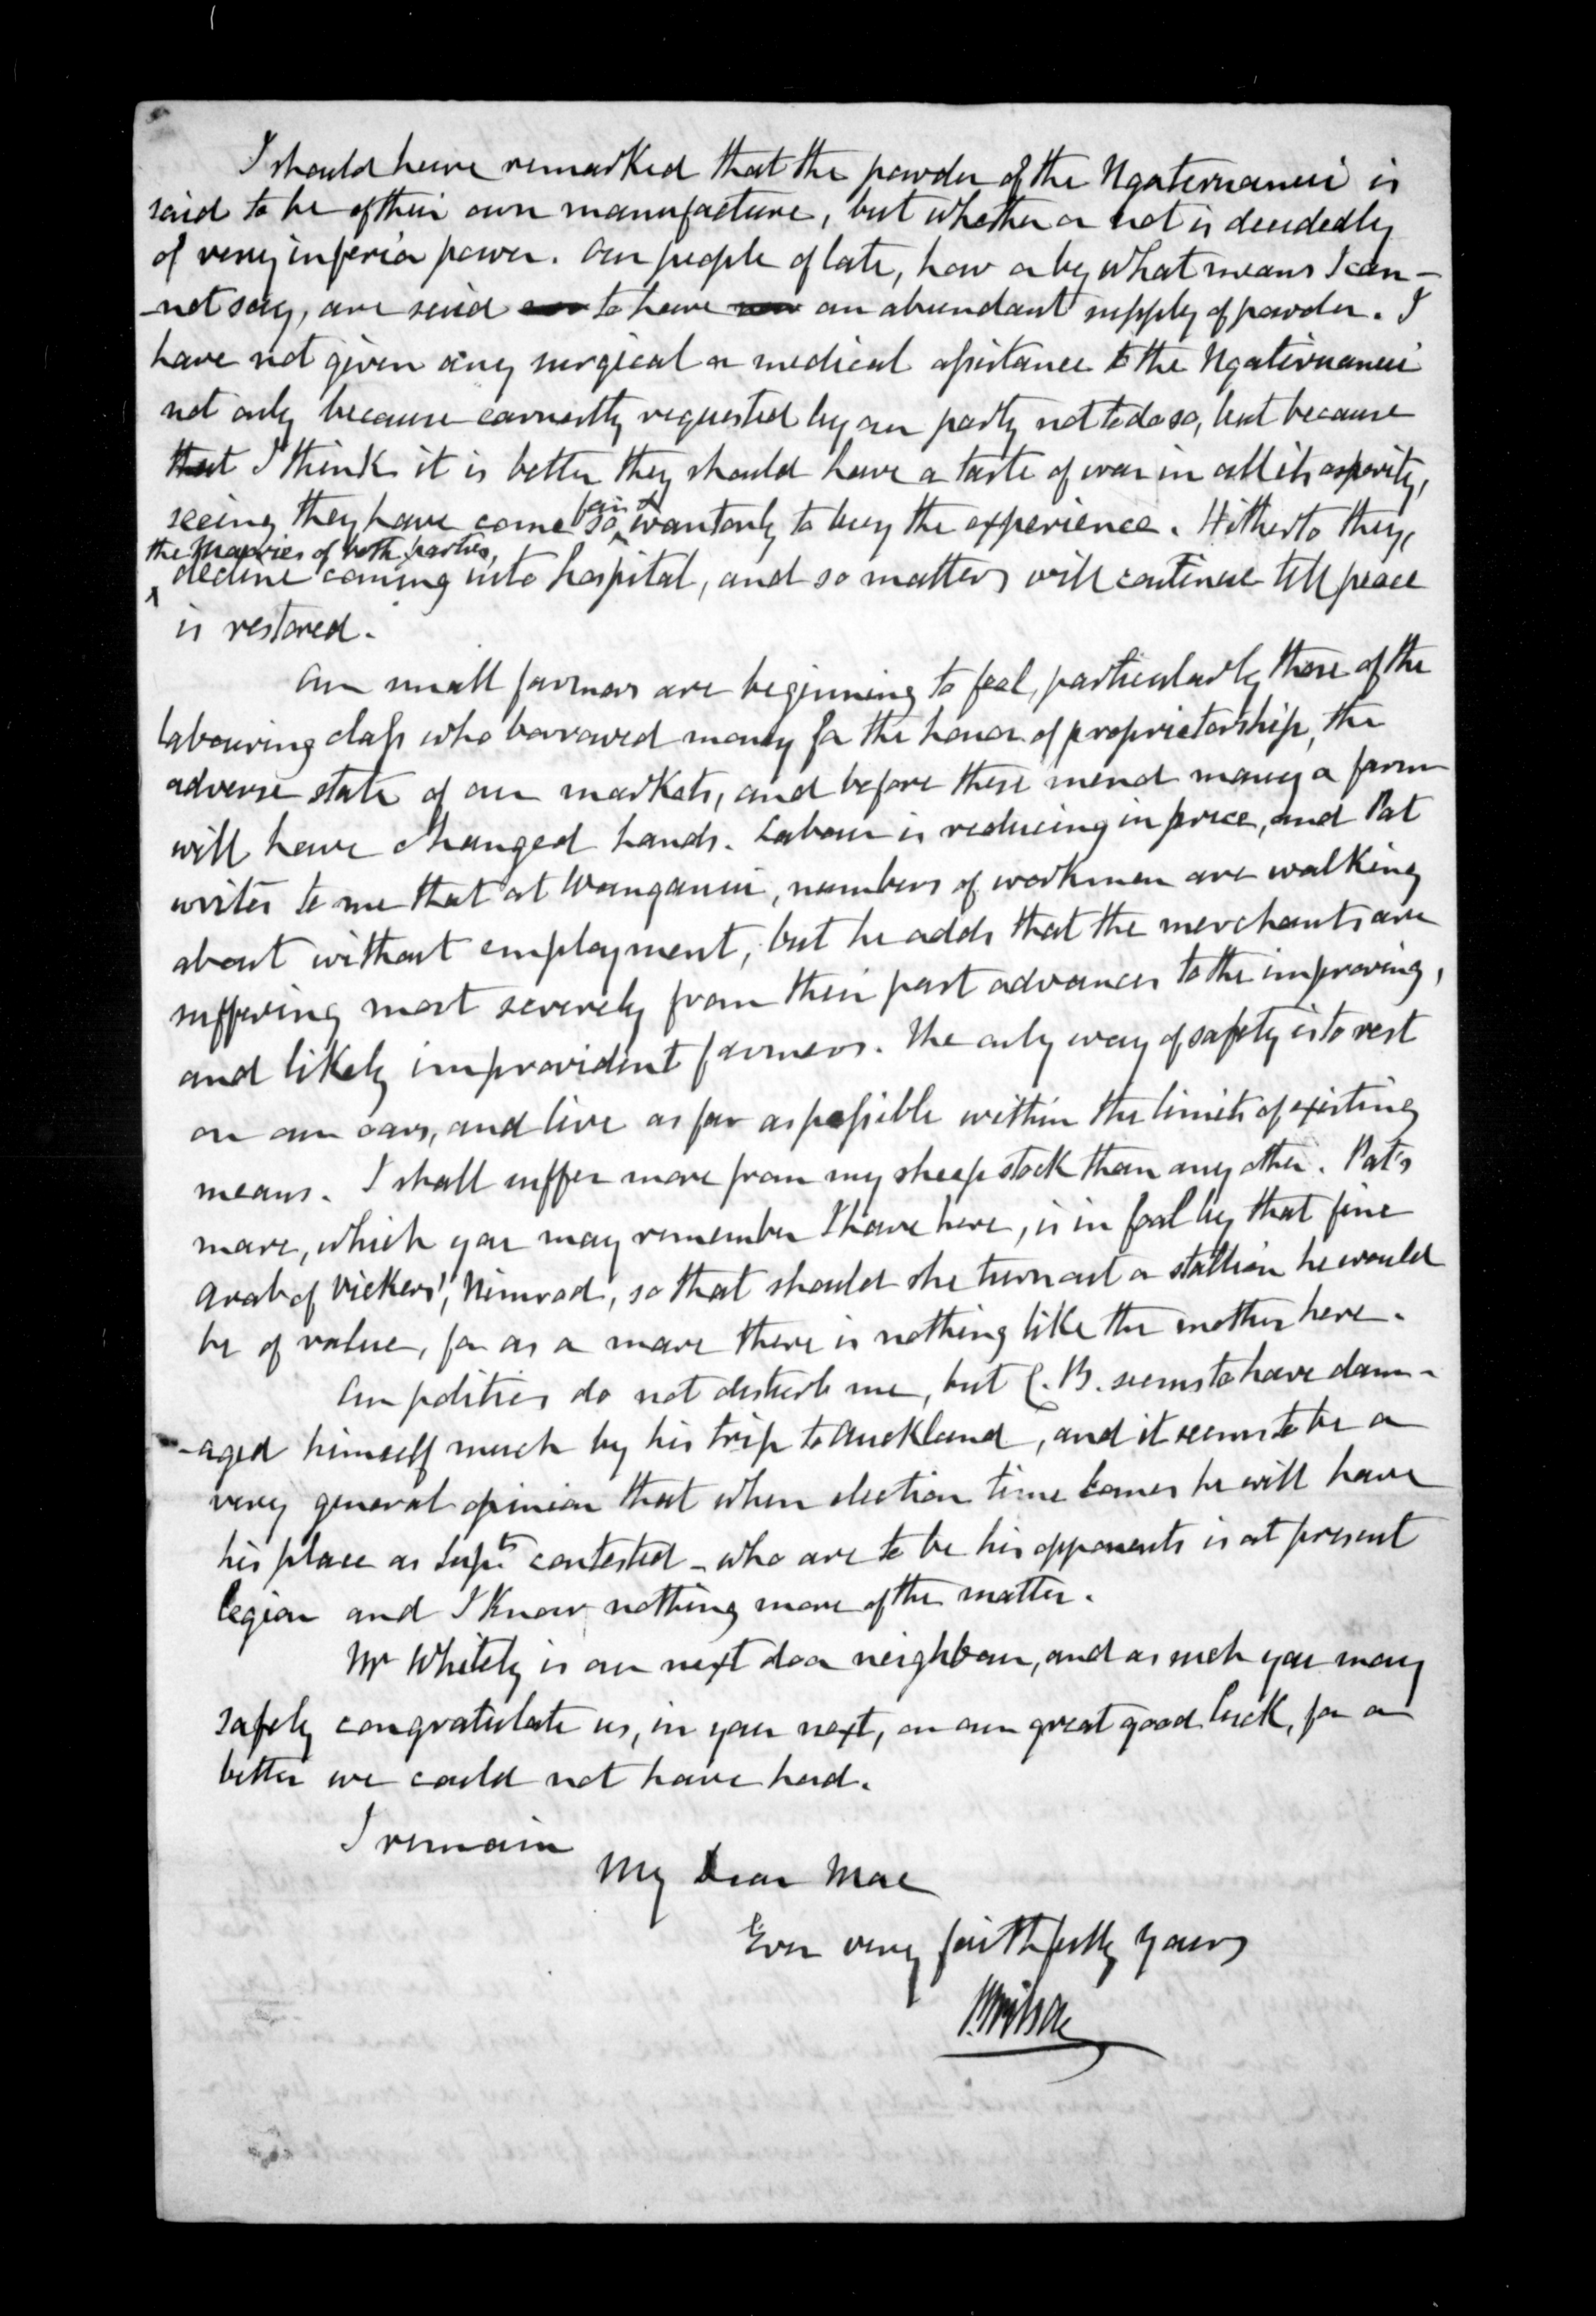 I should have remarked that the powder of the Ngateruanui is
said to be of their own manufacture, but whether or not is decidedly
of very inferior power. Our people of late, how or by what means I can-
-not say, are said to have an abundant supply of powder. I
have not given any surgical or medical assistance to the Ngatiruanui
not only because earnestly requested by our party not to do so, but because
that I think it is better they should have a taste of war in all its asperity,
seeing they have come so wantonly to buy the experience. Hitherto they,
the Maories of both parties,
decline coming into hospital, and so matters will continue till peace
is restored.
Our small farmers are beginning to feel, particularly those of the
labouring class who borrowed money for the honor of proprietorship, the
adverse state of our markets, and before these mend many a farm
will have changed hands. Labour is reducing in price, and Pat
writes to me that at Wanganui, numbers of workmen are walking
about without employment, but he adds that the merchants are
suffering most severely from their past advances to the improving,
and likely improvident farmers. The only way of safety is to rest
on our oars, and live as far as possible within the limits of existing
means. I shall suffer more from my sheep stock than any other. Pat's
mare, which you may remember I have here, is in foal by that fine
Arab of Vickers', Nimrod, so that should she turn out a stallion he would
be of value, for as a mare there is nothing like the mother here.
Our politics do not disturb me, but C. B. seems to have dam-
-aged himself much by his trip to Auckland, and it seems to be a
very general opinion that when election time comes he will have
his place as Supt. contested - who are to be his opponents is at present
legion and I know nothing more of the matter.
Mr Whitely is our next door neighbour, and as such you may
safely congratulate us, in your next, on our great good luck, for a
better we could not have had.
I remain
My Dear Mac
Ever very faithfully yours
P. Wilson